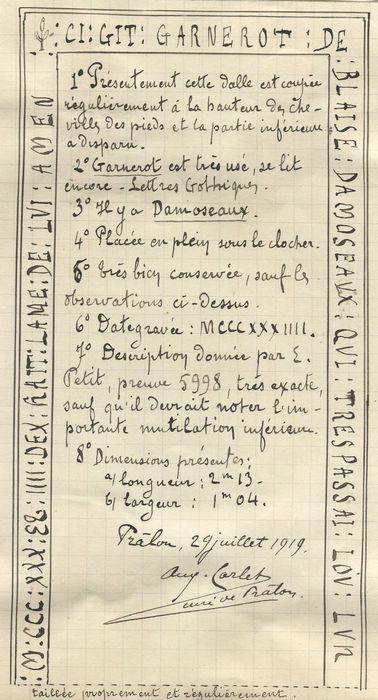 : CI : GIT : GARNEROT : DE :
BLAISE : DAMOSEAUX : QVI : TRESPASSAI : LOV : LVN
M : CCC : XXX : ET : IIII : DEX : HAIT : LAME : DE : LVI : AMEN
1° Présentement cette dalle est coupée
régulièrement à la hauteur des che-
villes des pieds et la partie inférieure
a disparu.
2° Garnerot est très usé, se lit
encore - Lettres Gothiques.
3° Il y a Damoseaux.
4° Placée en plein sous le clocher.
5° très bien conservée, sauf les
observations ci-dessus.
6° Date gravée : MCCCXXXIIII.
7° Description donnée par E.
Petit, preuve 5998, très exacte,
sauf qu'il devrait noter l'im-
portante mutilation inférieure.
8° Dimensions présentes :
a/ longueur : 2m 13 -
b/ largeur : 1m 04.
Prâlon, 29 juillet 1919.
Aug. Carlet
curé de Prâlon.
taillée proprement et régulièrement.